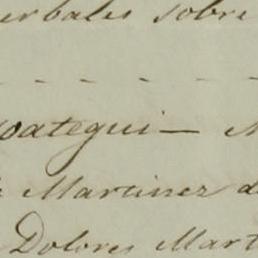 erbales sobre
- - - - -
oategui —
Martinez d
Dolores Mart